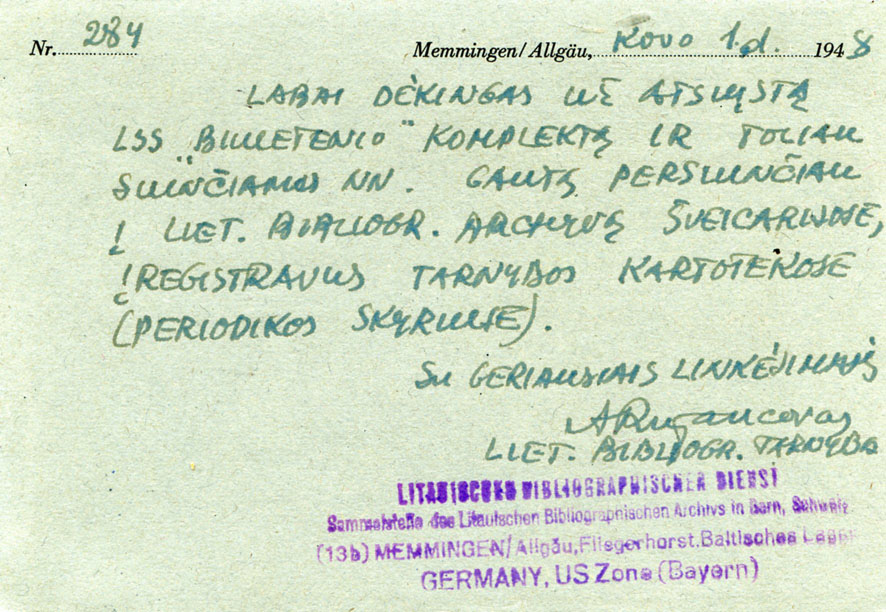 Nr. 284 Memmingen/Allgäu, Kovo 1 d. 1948
LABAI DĖKINGAS UŽ ATSIŲSTĄ
LSS "BIULETENIO" KOMPLEKTĄ IR TOLIAU
SIUNČIAMUS NN. GAUTĄ PERSIUNČIAU
Į LIET. BIBLIOGR. ARCHYVĄ ŠVEICARIJOJE,
ĮREGISTRAVUS TARNYBOS KARTOTEKOSE
(PERIODIKOS SKYRIUJE).
SU GERIAUSIAIS LINKĖJIMAIS
ARužancovas
LIET. BIBLIOGR. TARNYBA
LITAUISCHER BIBLIOGRAPHISCHER DIENST
Sammelstelle des Litauischen Bibliographischen Archivs in Bern, Schweiz
(13b) MEMMINGEN/Allgäu, Fliegerhorst. Baltisches Lager
GERMANY, US Zone (Bayern)